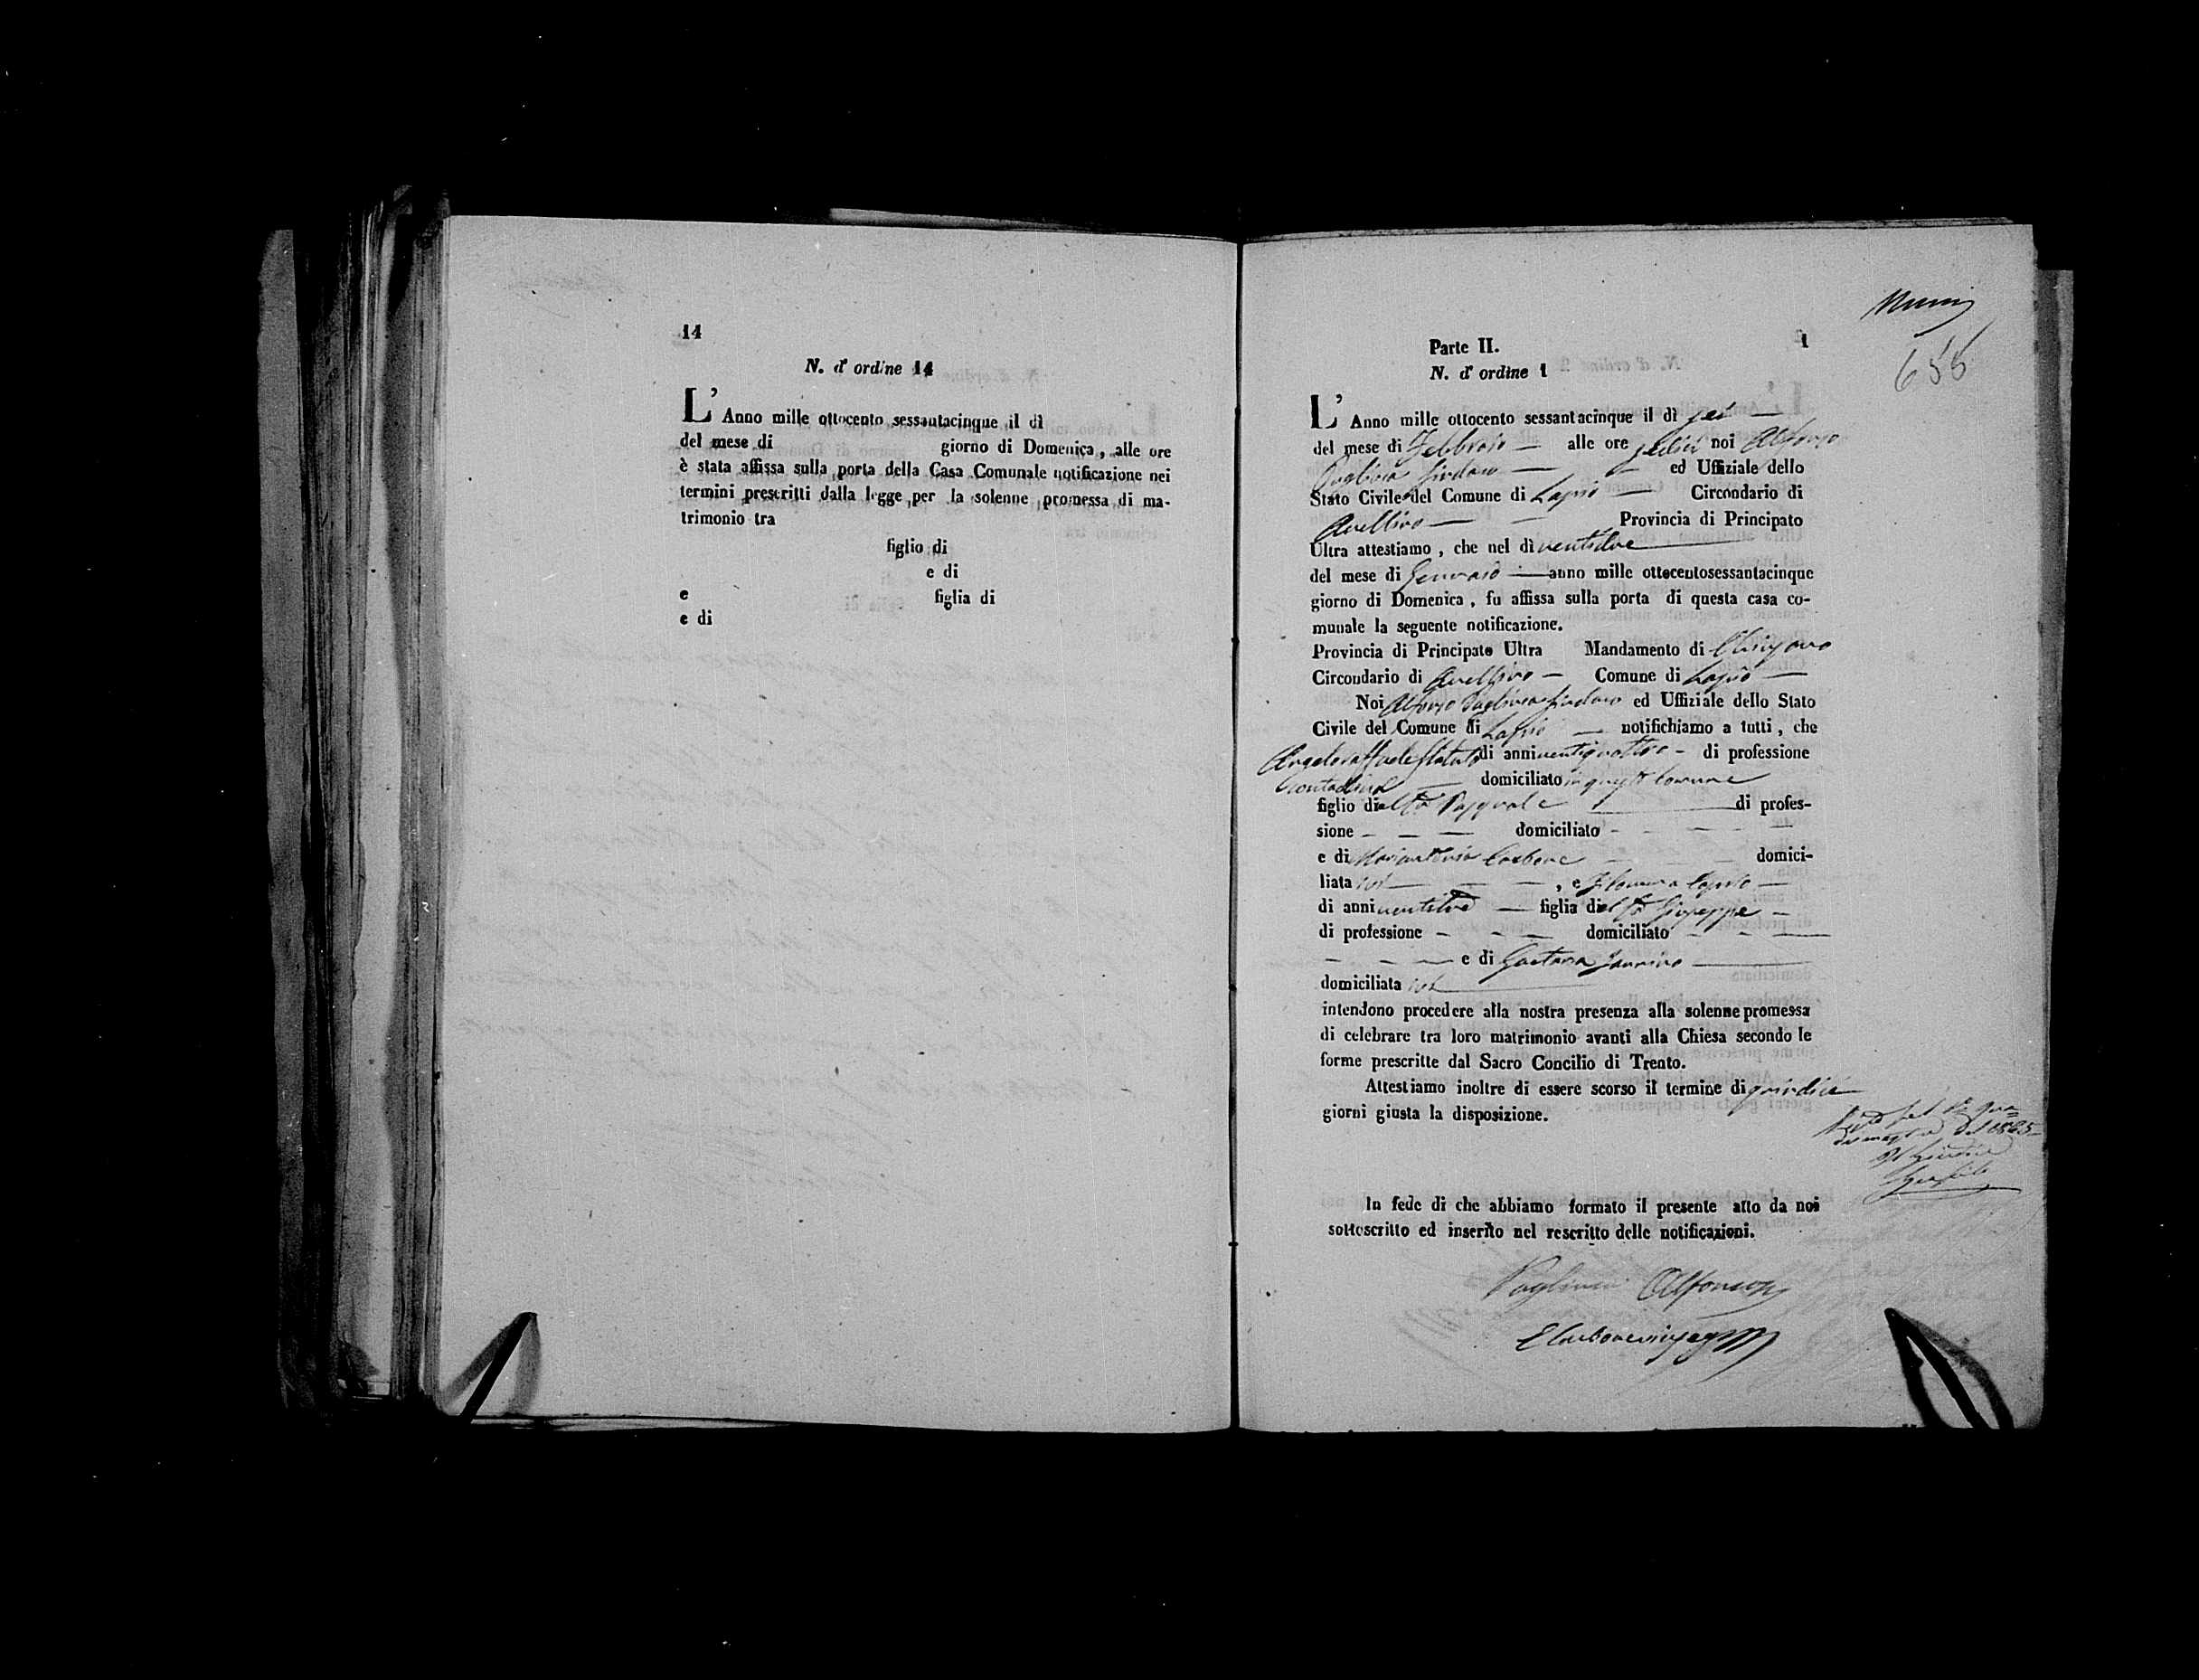 14
N. d'ordine 14
L'Anno mille ottocento sessantacinque il dì
del mese di giorno di Domenica, alle ore
è stata affissa sulla porta della Casa Comunale notificazione nei
termini prescritti dalla legge per la solenne promessa di ma-
trimonio tra
figlio di
e di
e figlia di
e di
Parte II. 1
N. d'ordine 1
L'Anno mille ottocento sessantacinque il dì sei
del mese di Febbraio alle ore sedici noi Alfonso
Pagliuca Sindaco ed Uffiziale dello
Stato Civile del Comune di Lapio Circondario di
Avellino Provincia di Principato
Ultra attestiamo, che nel dì ventidue
del mese di Gennaio anno mille ottocentosessantacinque
giorno di Domenica, fu affissa sulla porta di questa casa co-
munale la seguente notificazione.
Provincia di Principato Ultra Mandamento di
Circondario di Avellino Comune di Lapio
Noi Alfonso Pagliuca Sindaco ed Uffiziale dello Stato
Civile del Comune di Lapio notifichiamo a tutti, che
Angeloraffaele Statuto di anni ventiquattro di professione
contadino domiciliato in questo Comune
figlio di Pasquale di profes-
sione domiciliato
e di Mariantonia Carbone domici-
liata ivi, e Filomena
di anni figlia di Giuseppe
di professione domiciliato
e di Gaetana
domiciliata ivi
intendono procedere alla nostra presenza alla solenne promessa
di celebrare tra loro matrimonio avanti alla Chiesa secondo le
forme prescritte dal Sacro Concilio di Trento.
Attestiamo inoltre di essere scorso il termine di quindici
giorni giusta la disposizione.
In fede di che abbiamo formato il presente atto da noi
sottoscritto ed inserito nel rescritto delle notificazioni.
Pagliuca Alfonso